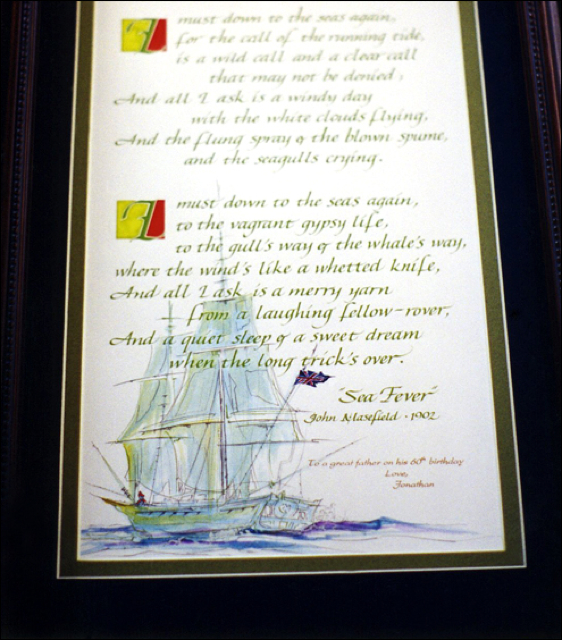 I must down to the seas again,
for the call of the running tide,
is a wild call and a clear call
that may not be denied;
And all I ask is a windy day
with the white clouds flying,
And the flung spray & the blown spume,
and the seagulls crying.
I must down to the seas again,
to the vagrant gypsy life,
to the gull's way & the whale's way,
where the wind's like a whetted knife,
And all I ask is a merry yarn
from a laughing fellow-rover,
And a quiet sleep & a sweet dream
when the long trick's over.
"Sea Fever"
John Masefield · 1902
To a great father on his 80th birthday
Love,
Jonathan